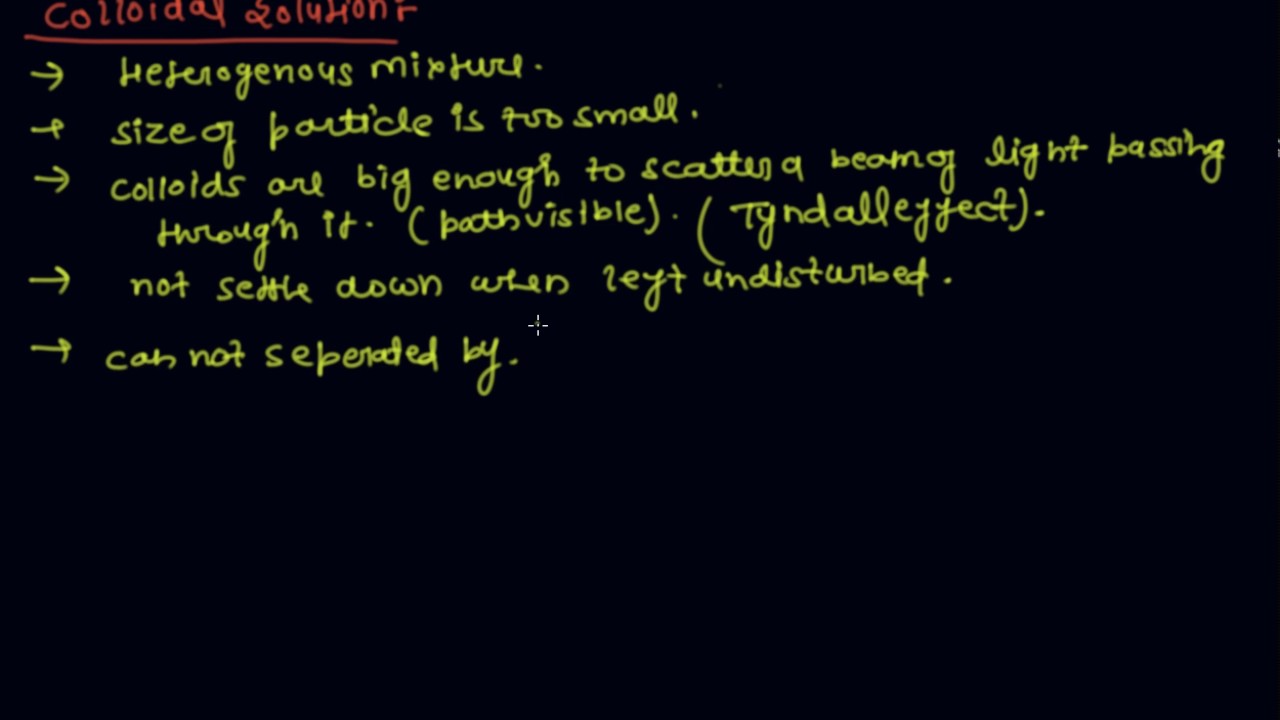 Colloidal Solution:
→ Heterogenous mixture.
→ size of particle is too small.
→ colloids are big enough to scatter a beam of light passing
through it. (path visible). (Tyndall effect).
→ not settle down when left undisturbed.
→ can not seperated by.